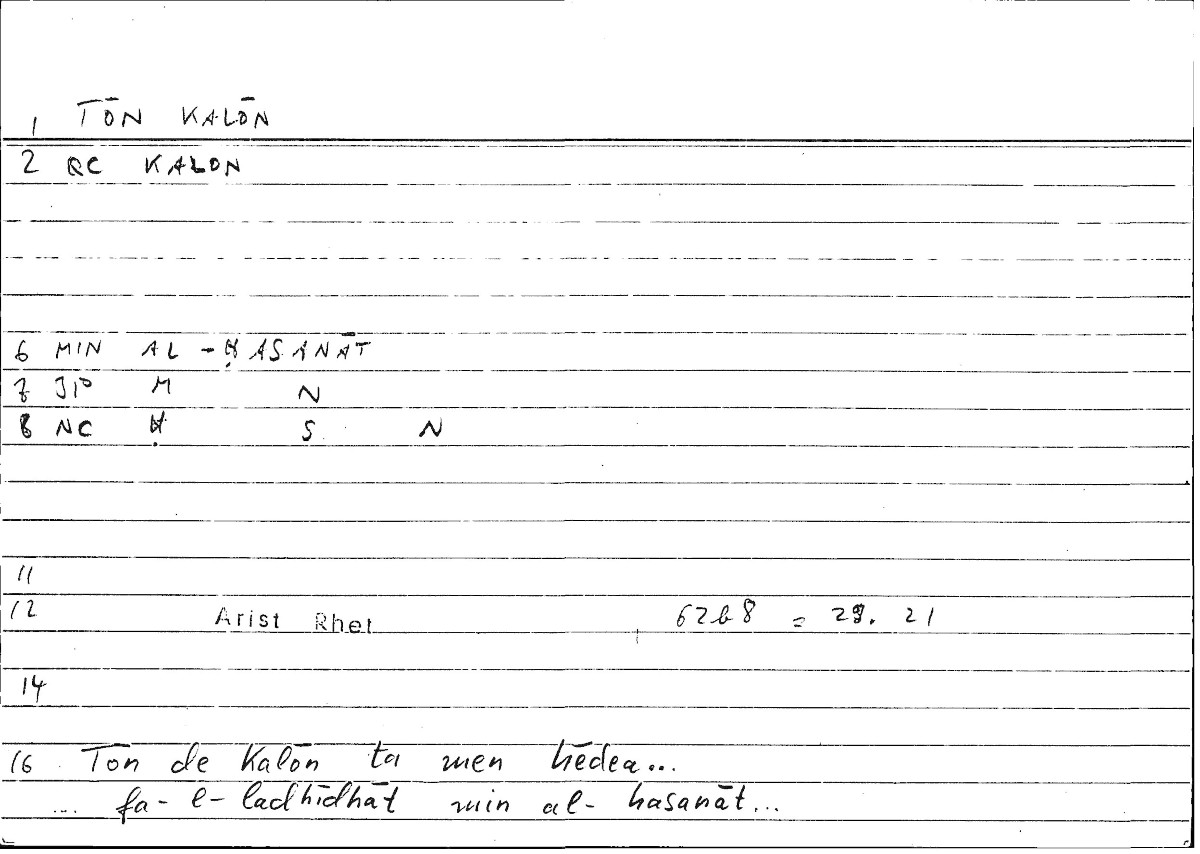 1 TŌN KALŌN
2 QC KALON
6 MIN AL-ḤASANĀT
7 JP M N
8 NC Ḥ S N
11
12 Arist Rhet 62b8 = 29. 21
14
16 Tōn de Kalōn ta men hēdea...
... fa-l-ladhīdhāt min al-hasanāt...